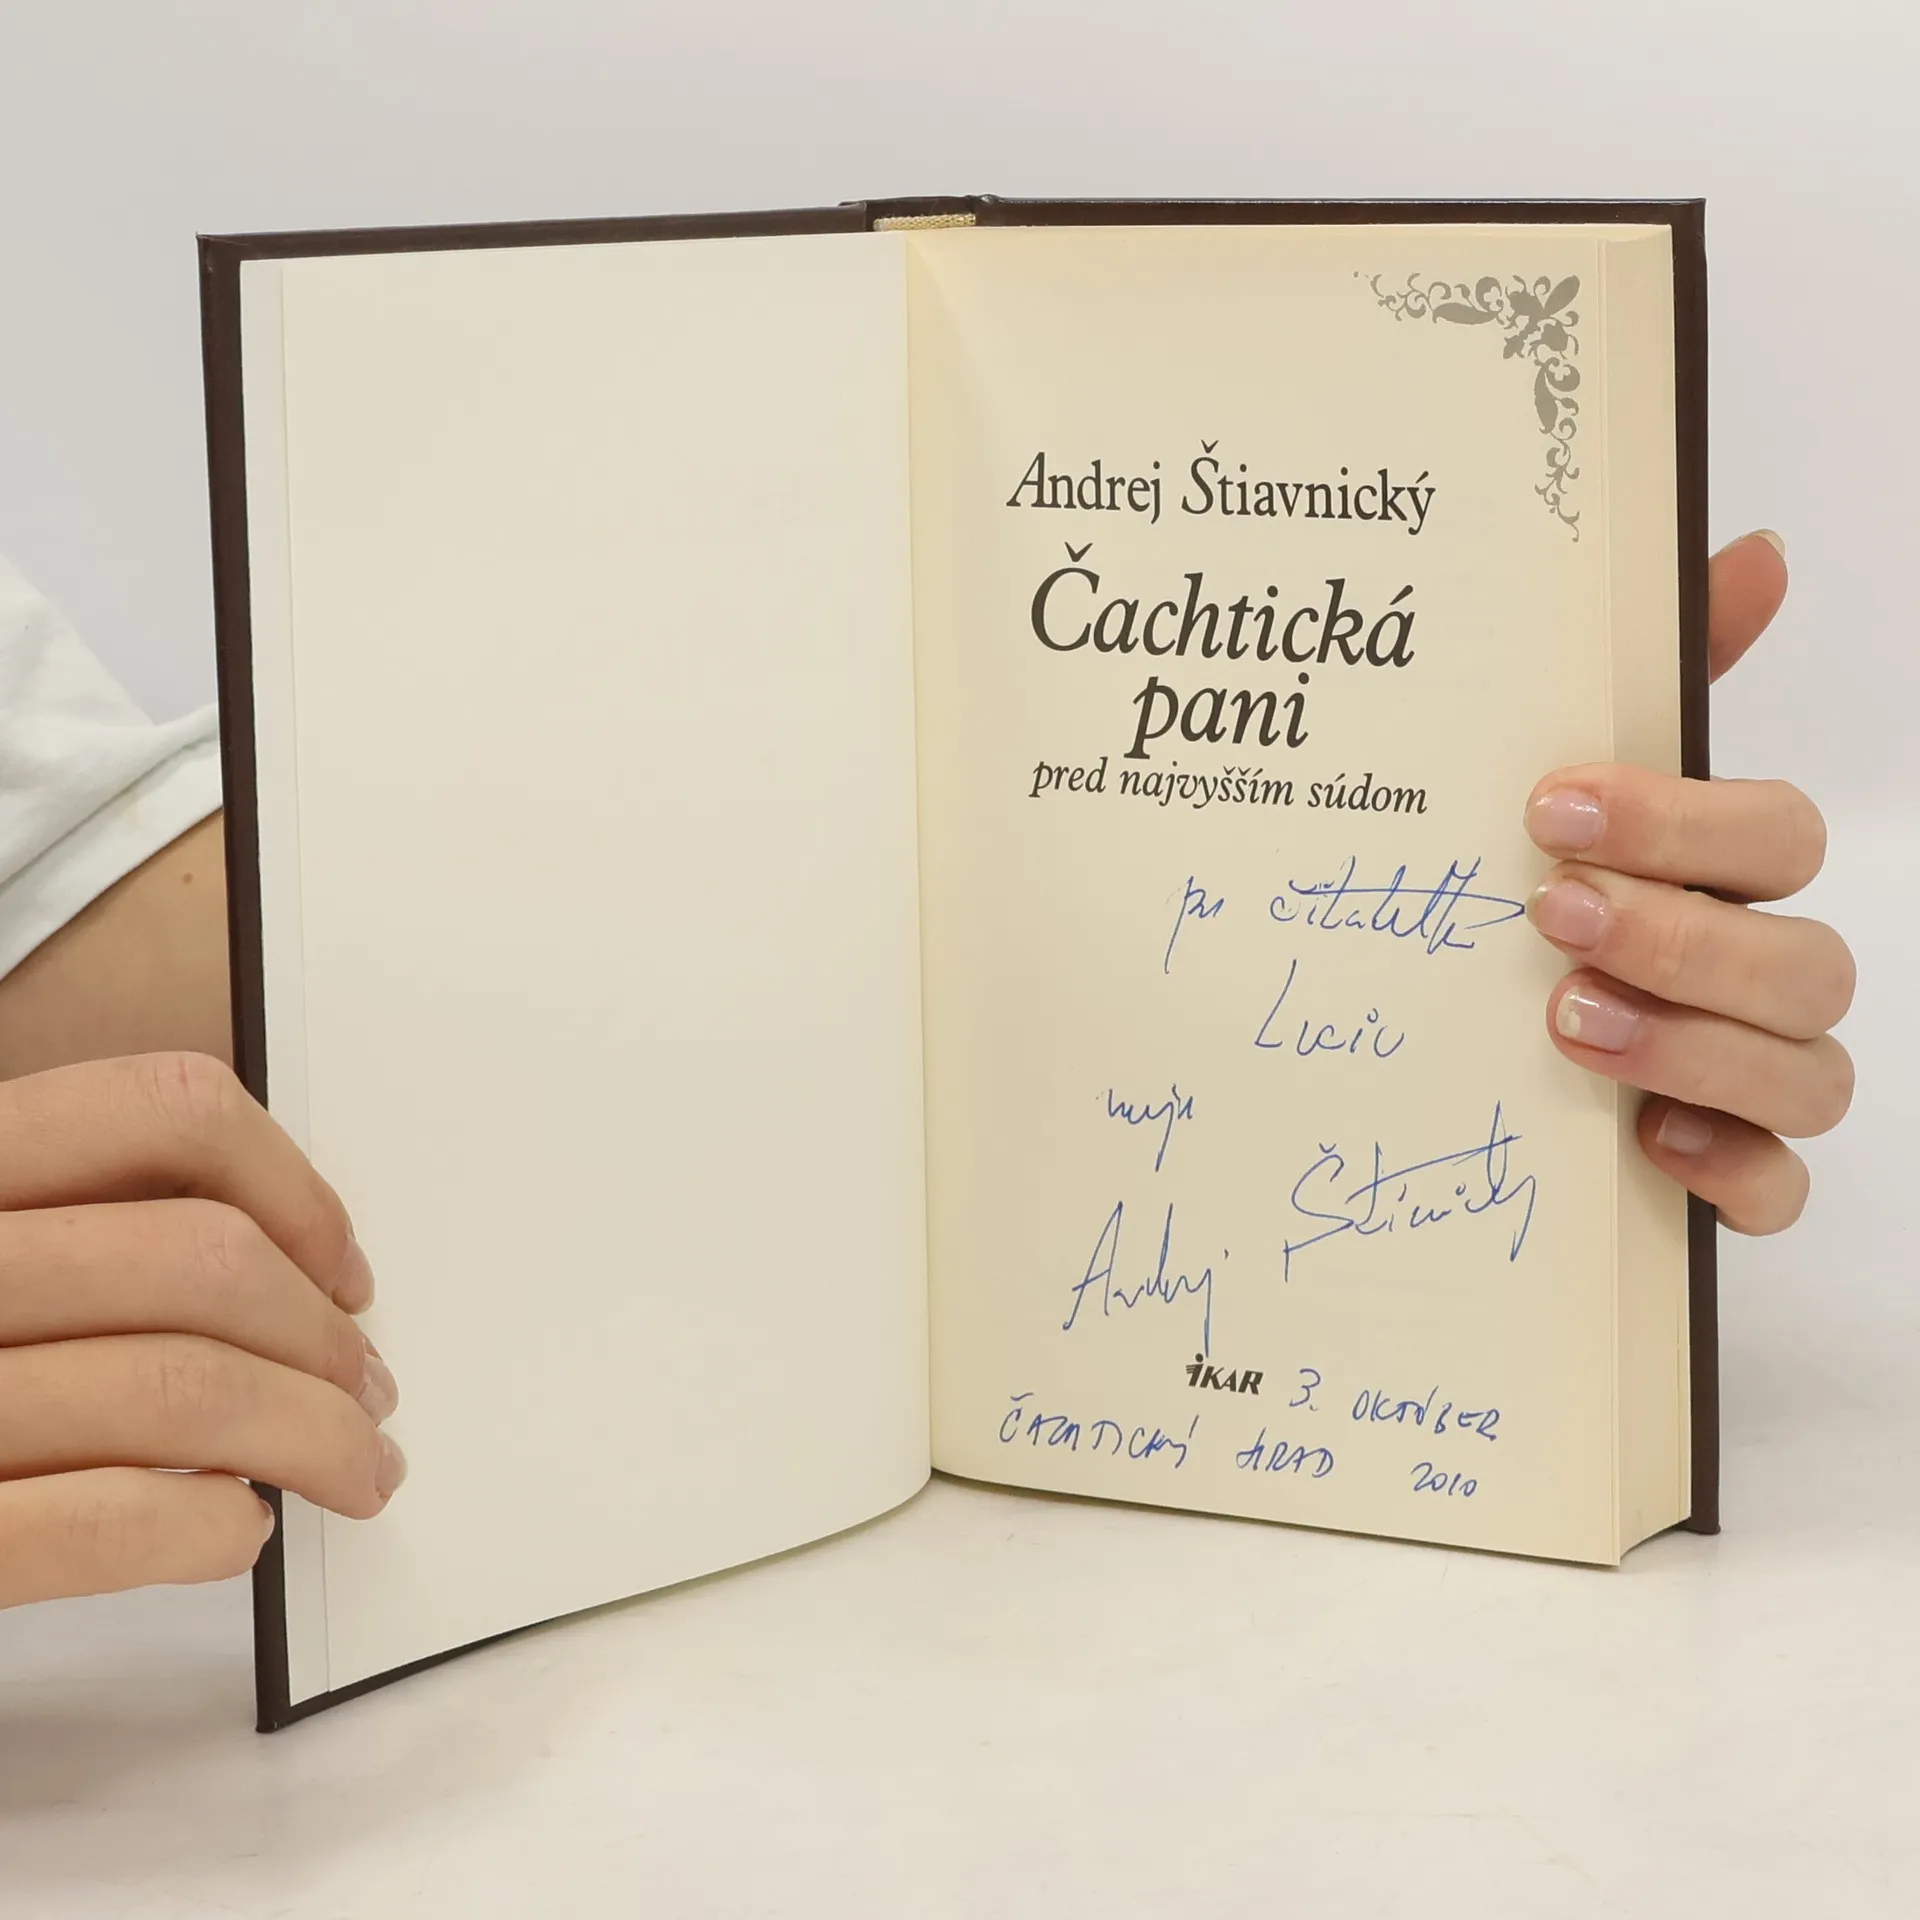 Andrej Štiavnický
Čachtická
pani
pred najvyšším súdom
pre čitateľku
Luciu
Andrej Štiavnický
IKAR 3. OKTÓBER
ČACHTICKÝ HRAD 2010